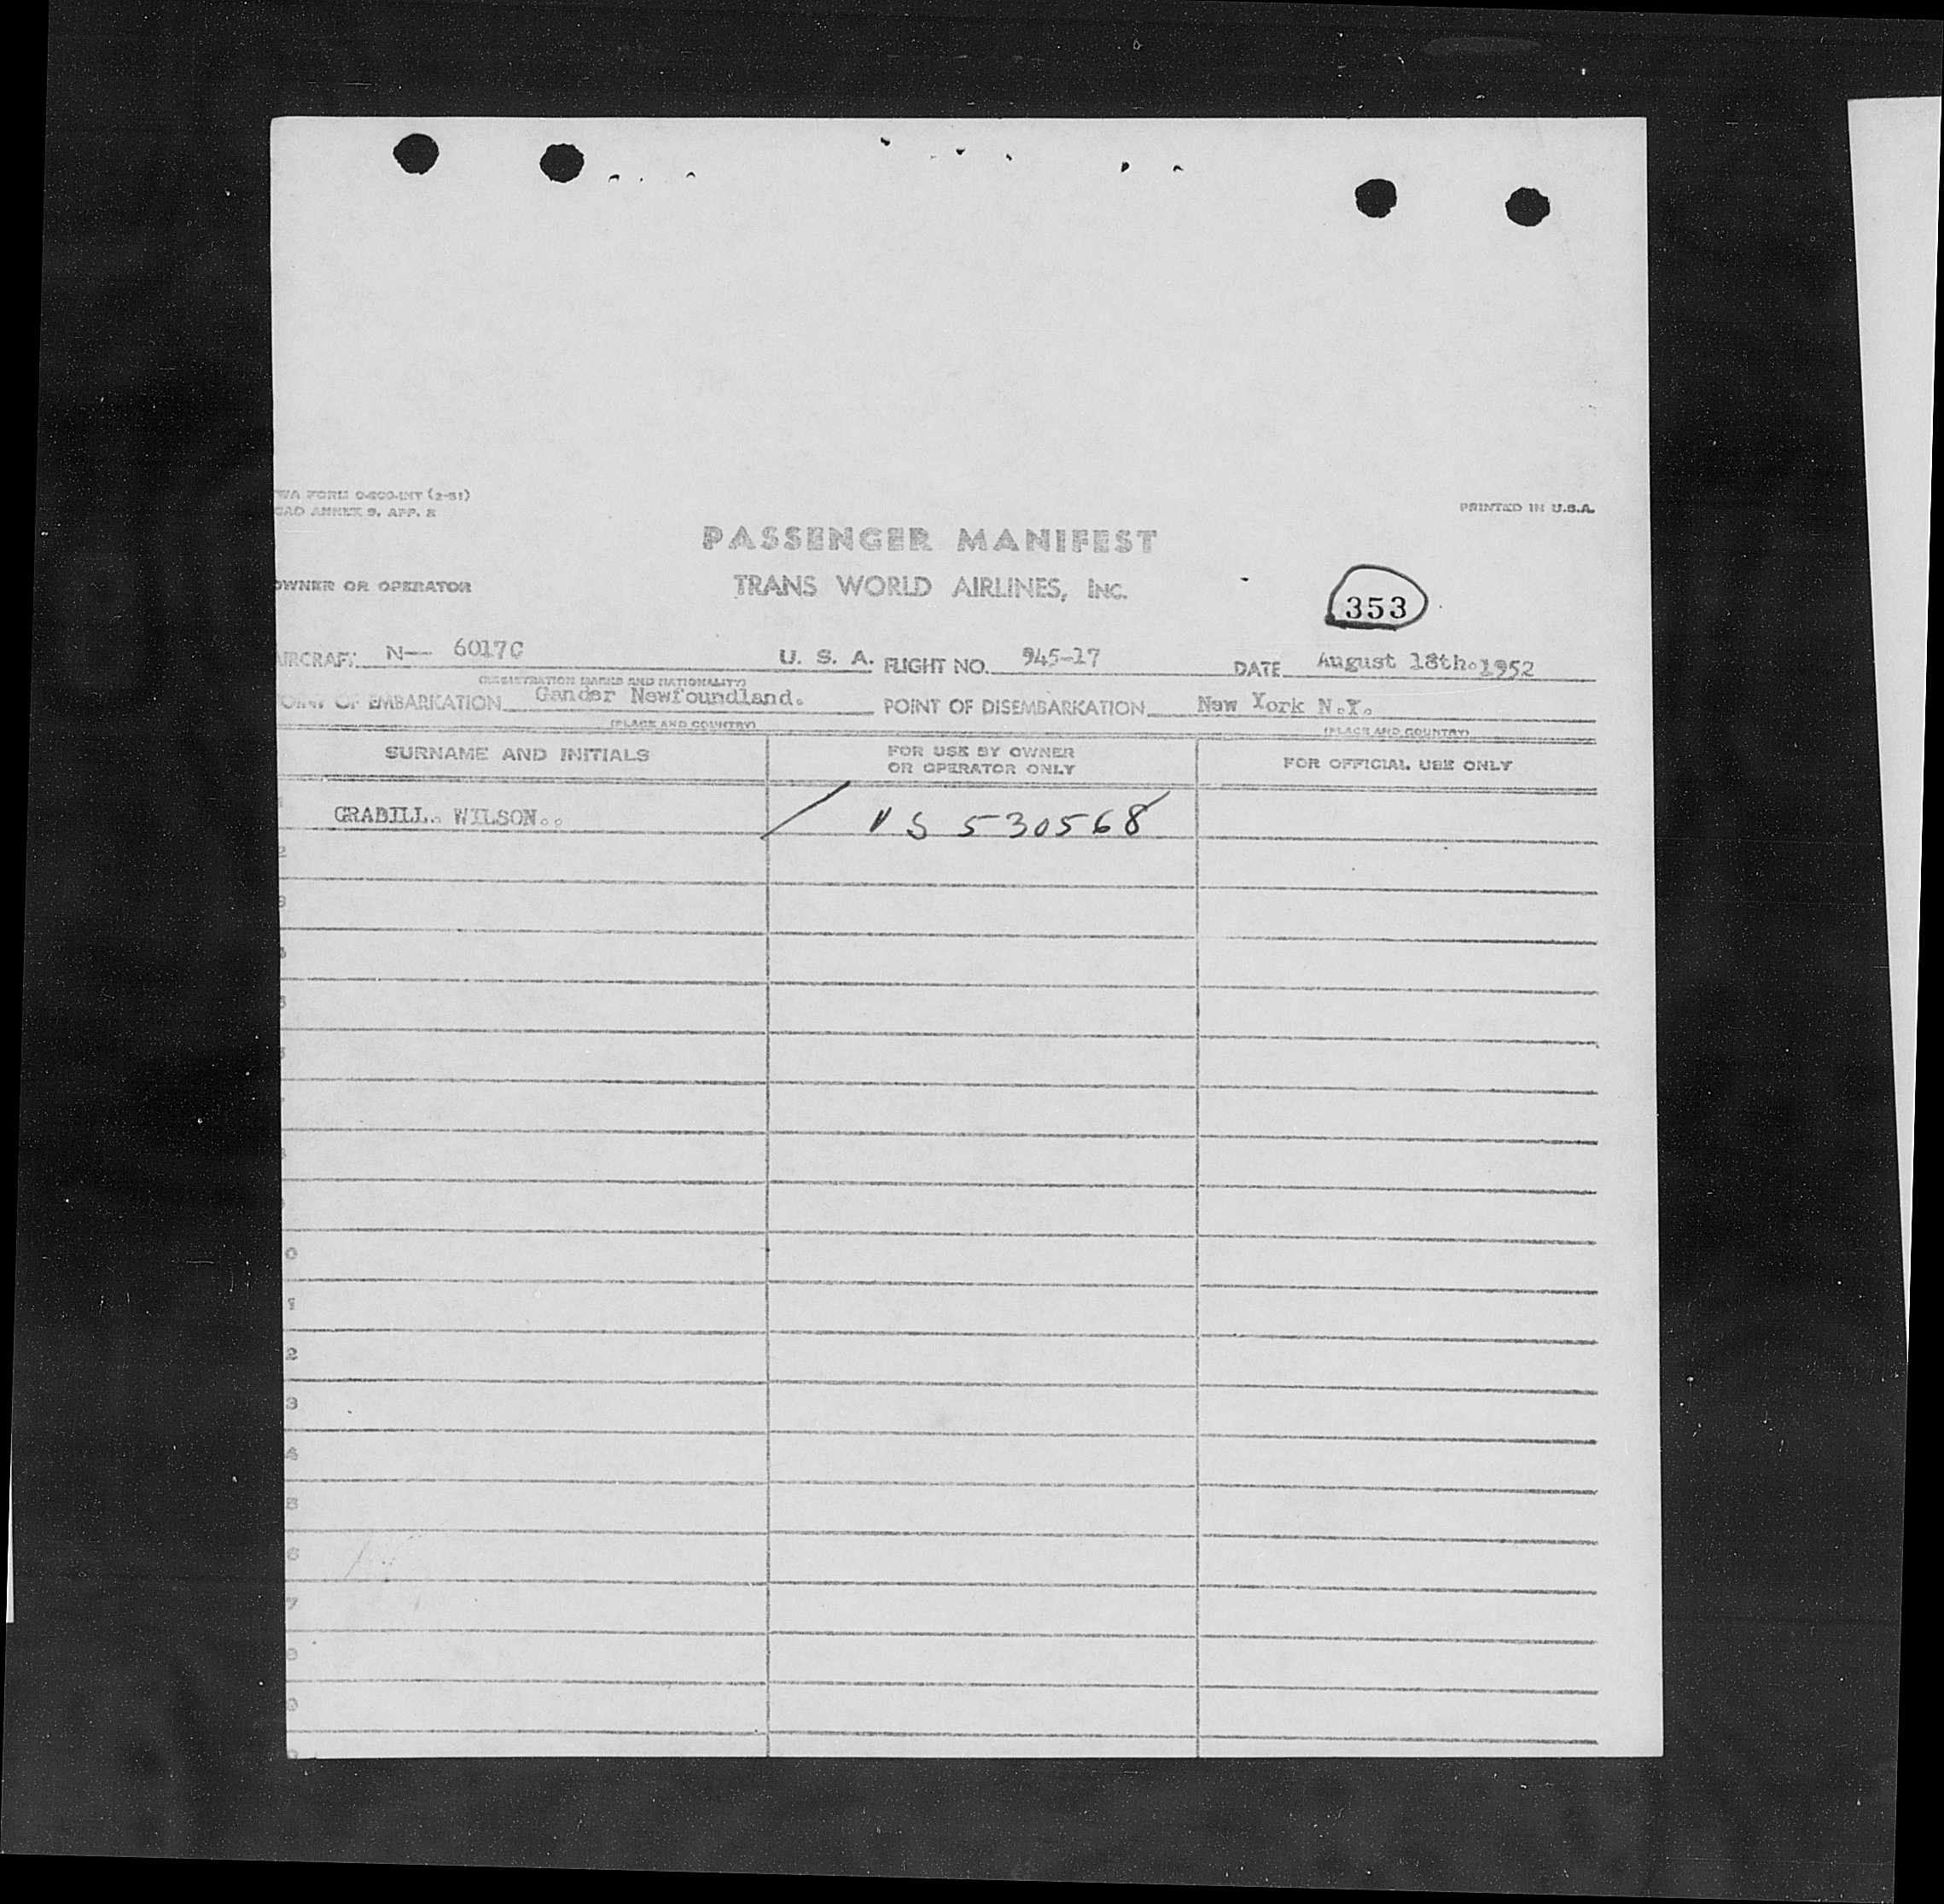 WA FORM O-800-INT (2-51)
CAO ANNEX 9, APP. 2
PRINTED IN U.S.A.
PASSENGER MANIFEST
OWNER OR OPERATOR TRANS WORLD AIRLINES, INC.
353
AIRCRAFT N— 6017C U. S. A. FLIGHT NO. 945-17 DATE August 18th.1952
(REGISTRATION MARKS AND NATIONALITY)
OINT OF EMBARKATION Gander Newfoundland. POINT OF DISEMBARKATION New York N.Y.
(PLACE AND COUNTRY) (PLACE AND COUNTRY)
SURNAME AND INITIALS FOR USE BY OWNER OR OPERATOR ONLY FOR OFFICIAL USE ONLY
1 GRABILL. WILSON.. / VS 530568
2
3
4
5
0
1
2
3
4
5
6
7
8
9